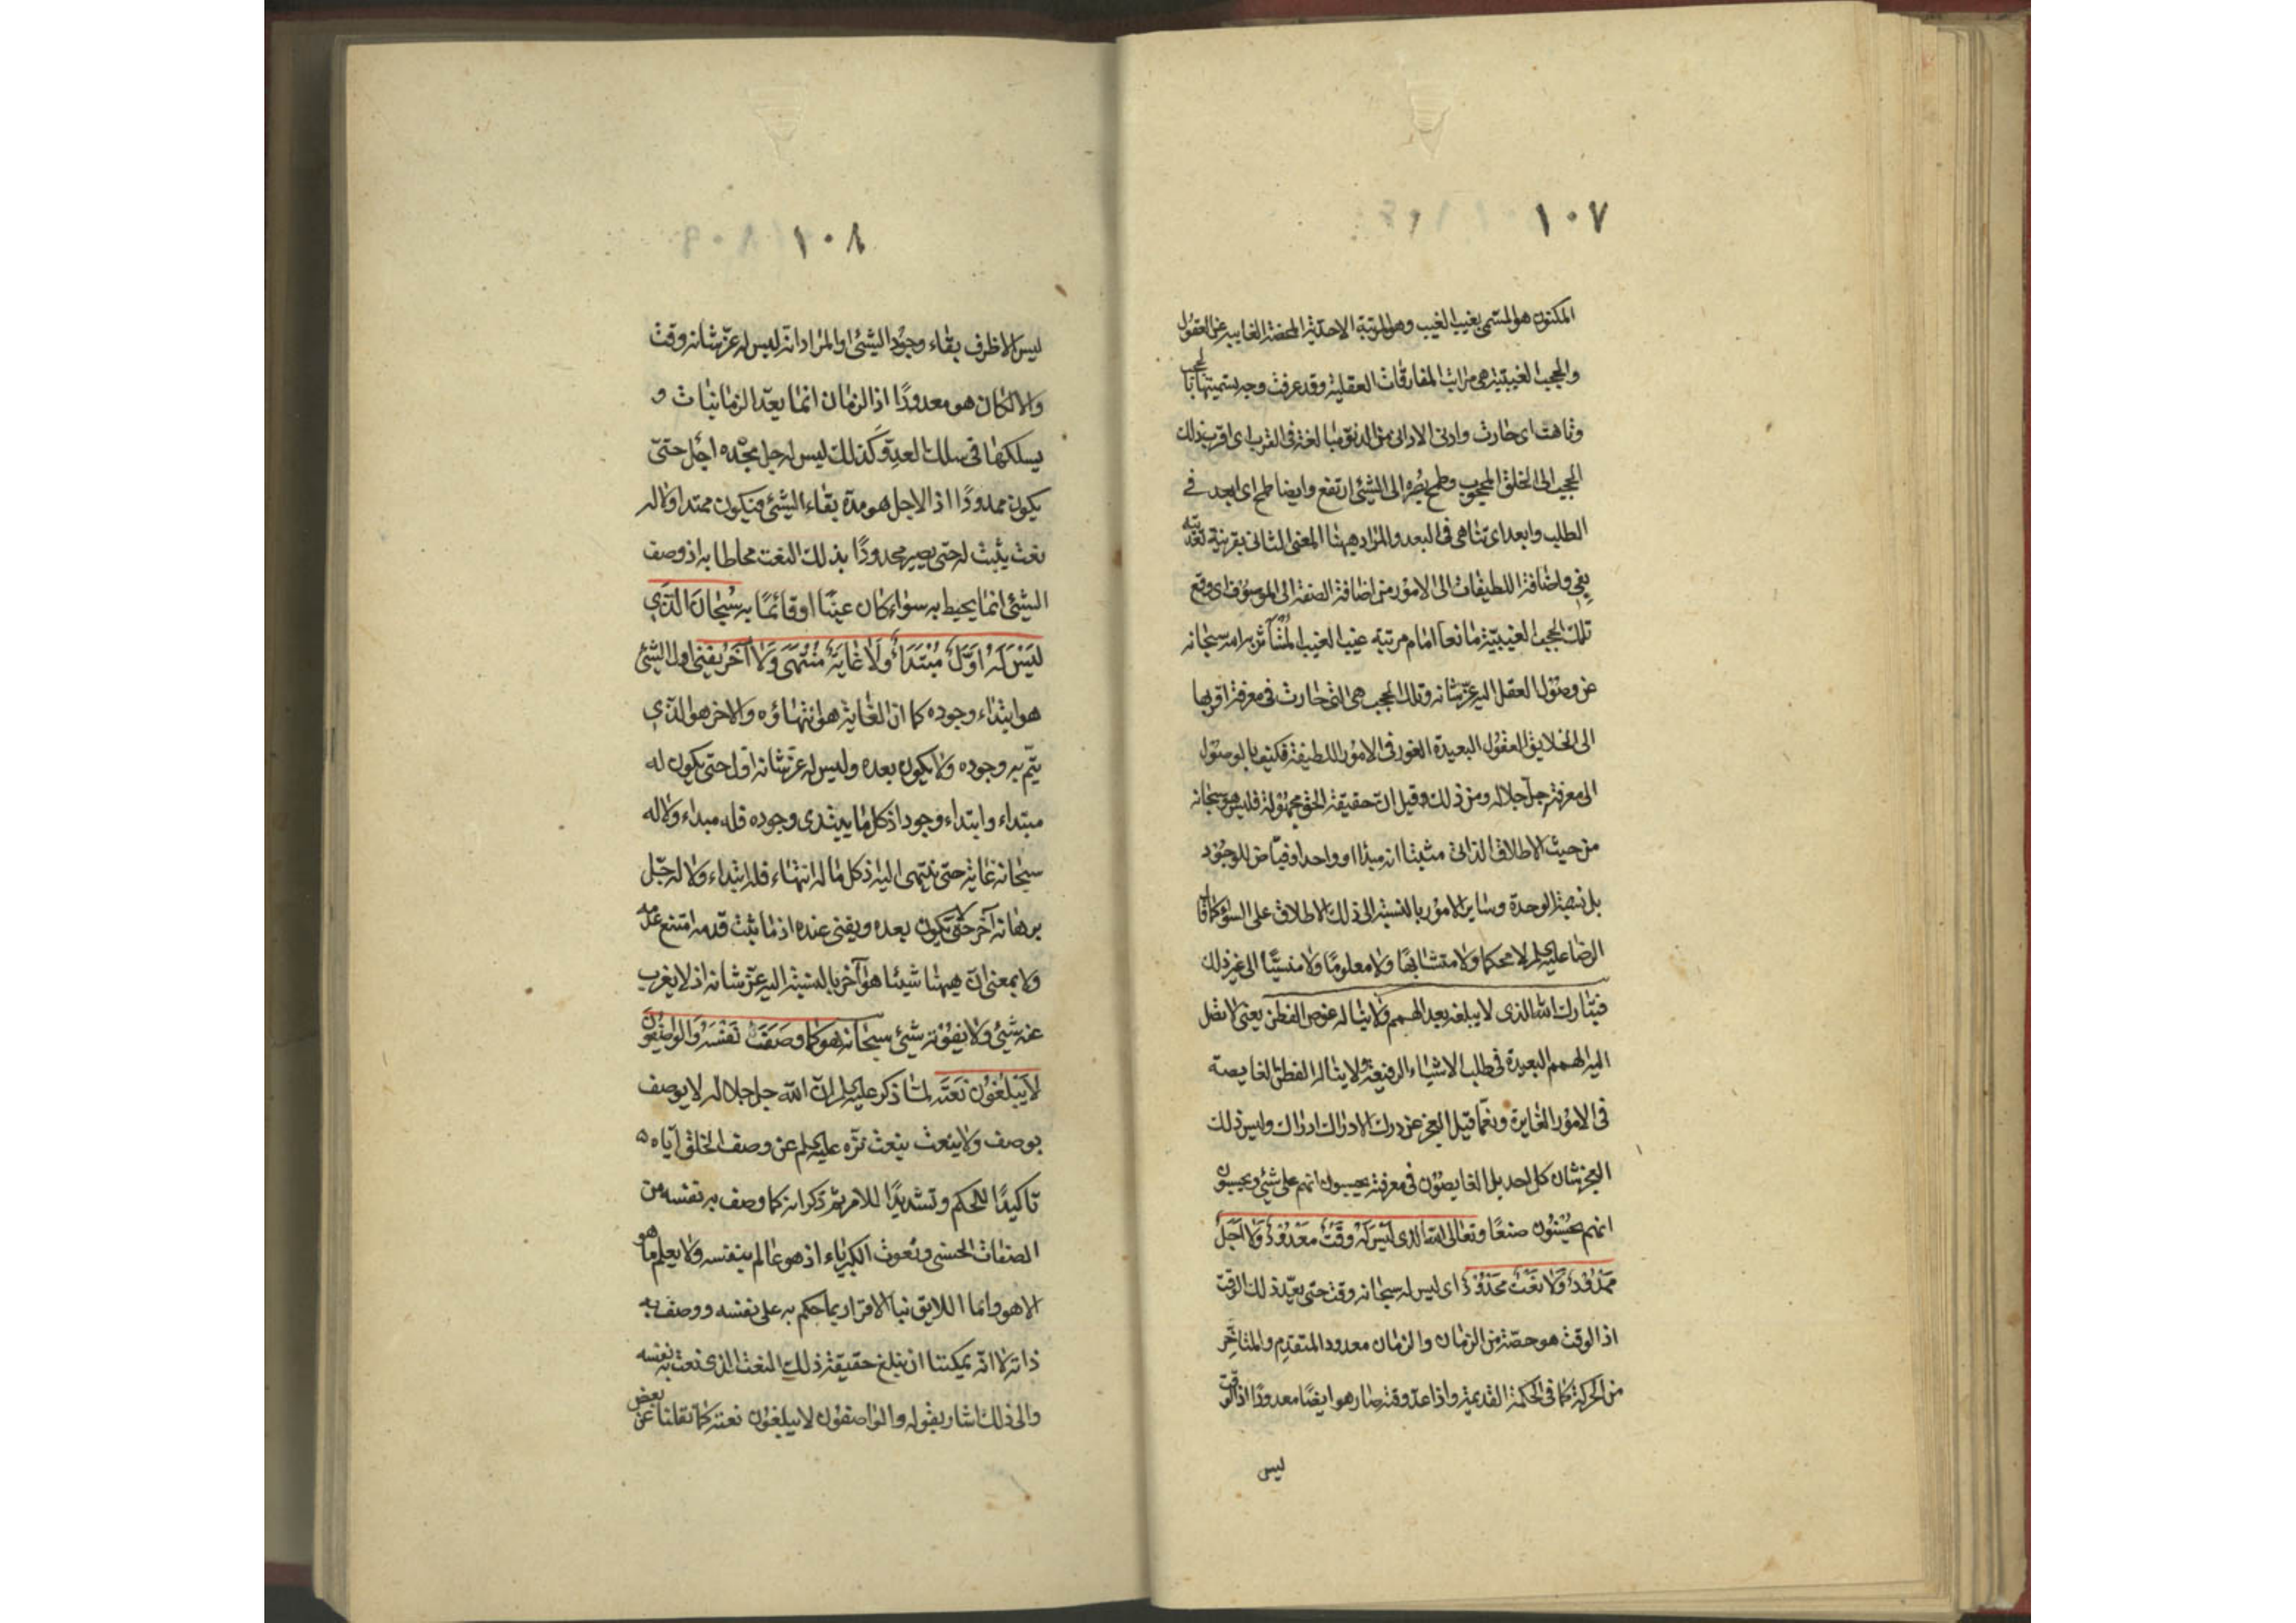 ١٠٧
المكنون هو المسمى بغيب الغيب وهو المرتبة الاحدية المحضة الغايبة عن العقول
والحجب الغيبية هى مراتب المفارقات العقلية وقد عرفت وجه تسميتها بالحجب
وتاهت اى حارت وادنى الادانى من الدنو مبالغة فى القرب اى اقرب تلك
الحجب الى الخلق المحجوب وطمح بصره الى الشئ ارتفع وايضا طمح اى ابعد فى
الطلب وابعد اى تناهى فى البعد والمراد ههنا المعنى الثانى بقرينة تعديته
بفى واضافة اللطيفات الى الامور من اضافة الصفة الى الموصوف اى وقع
تلك الحجب الغيبية مانعا امام مرتبة غيب الغيب المستأثر به سبحانه
عن وصول العقل اليه عز شانه وتلك الحجب هى التى حارت فى معرفة اقربها
الى الخلايق العقول البعيدة الغور فى الامور اللطيفة فكيف بالوصول
الى معرفته جل جلاله ومن ذلك قيل ان حقيقة الحق مجهولة فليس هو سبحانه
من حيث الاطلاق الذاتى مثبتا انه مبدا او واحد او فياض للوجود
بل نسبة الوحدة وساير الامور بالنسبة الى ذلك الاطلاق على السواء كما قال
الرضا عليه السلم لا محكما ولا متشابها ولا معلوما ولا منسيا الى غير ذلك
فتبارك الله الذى لا يبلغه بعد الهمم ولا يناله غوص الفطن يعنى لا تصل
اليه الهمم البعيدة فى طلب الاشياء الرفيعة ولا يناله الفطن الغايصة
فى الامور الغايرة ونعما قيل العجز عن درك الادراك ادراك وليس ذلك
العجز شان كل احد بل الغايصون فى معرفته يحسبون انهم على شئ ويحسبون
انهم يحسنون صنعا وتعالى الله الذى لَيْسَ لَهُ وَقْتٌ مَعْدُودٌ وَلَا أَجَلٌ
مَمْدُودٌ وَلَا نَعْتٌ مَحْدُودٌ اى ليس له سبحانه وقت حتى يعد ذلك الوقت
اذ الوقت هو حصة من الزمان والزمان معدود المتقدم والمتاخر
من الحركة كما فى الحكمة القديمة واذا عد وقته صار هو ايضا معدودا اذ الوقت
ليس
١٠٨
ليس الا ظرف بقاء وجود الشئ او المراد انه ليس له عز شانه وقت
والا لكان هو معدودًا اذ الزمان انما يعد الزمانيات و
يسلكها فى سلك العدة وكذلك ليس له جل مجده اجل حتى
يكون ممدودًا اذ الاجل هو مدة بقاء الشئ فيكون ممتدا ولا له
نعت يثبت له حتى يصير محدودًا بذلك النعت محاطا به اذ وصف
الشئ انما يحيط به سواء كان عينًا او قائمًا به سُبْحَانَ الَّذِي
لَيْسَ لَهُ اَوَّلٌ مُبْتَدَاءٌ وَلَا غَايَةٌ مُنْتَهَى وَلَا آخَرُ يَفْنى اول الشئ
هو ابتداء وجوده كما ان الغاية هو انتهاؤه والاخر هو الذي
يتم به وجوده ولا يكون بعده وليس له عز شانه اول حتى يكون له
مبتداء وابتداء وجود اذ كل ما يبتدى وجوده فله مبداء ولا له
سبحانه غاية حتى ينتهى اليه اذ كل ما له انتهاء فله ابتداء ولا له جل
برهانه آخر حتى لا يكون بعده ويفنى عنده اذ ما ثبت قدمه امتنع عدمه
ولا بمعنى ان ههنا شيئا هو آخر بالنسبة اليه عز شانه اذ لا يعزب
عنه شئ ولا يفوته شئ سبحانه هو كَمَا وَصَفَ نَفْسَهُ وَالْوَاصِفُونَ
لَا يَبْلُغُونَ نَعْتَهُ لما ذكر عليه السلم ان الله جل جلاله لا يوصف
بوصف ولا ينعت بنعت نزه عليه السلم عن وصف الخلق اياه
تاكيدًا للحكم وتشديدًا للامر ثم ذكر انه كما وصف به نفسه من
الصفات الحسنى ونعوت الكبرياء اذ هو عالم بنفسه ولا يعلم ما هو
الا هو وانما اللايق بنا الاقرار بما حكم به على نفسه ووصف به
ذاته لا انه يمكننا ان نبلغ حقيقة ذلك النعت الذى نعت به نفسه
والى ذلك اشار بقوله والواصفون لا يبلغون نعته كما نقلنا عن بعض